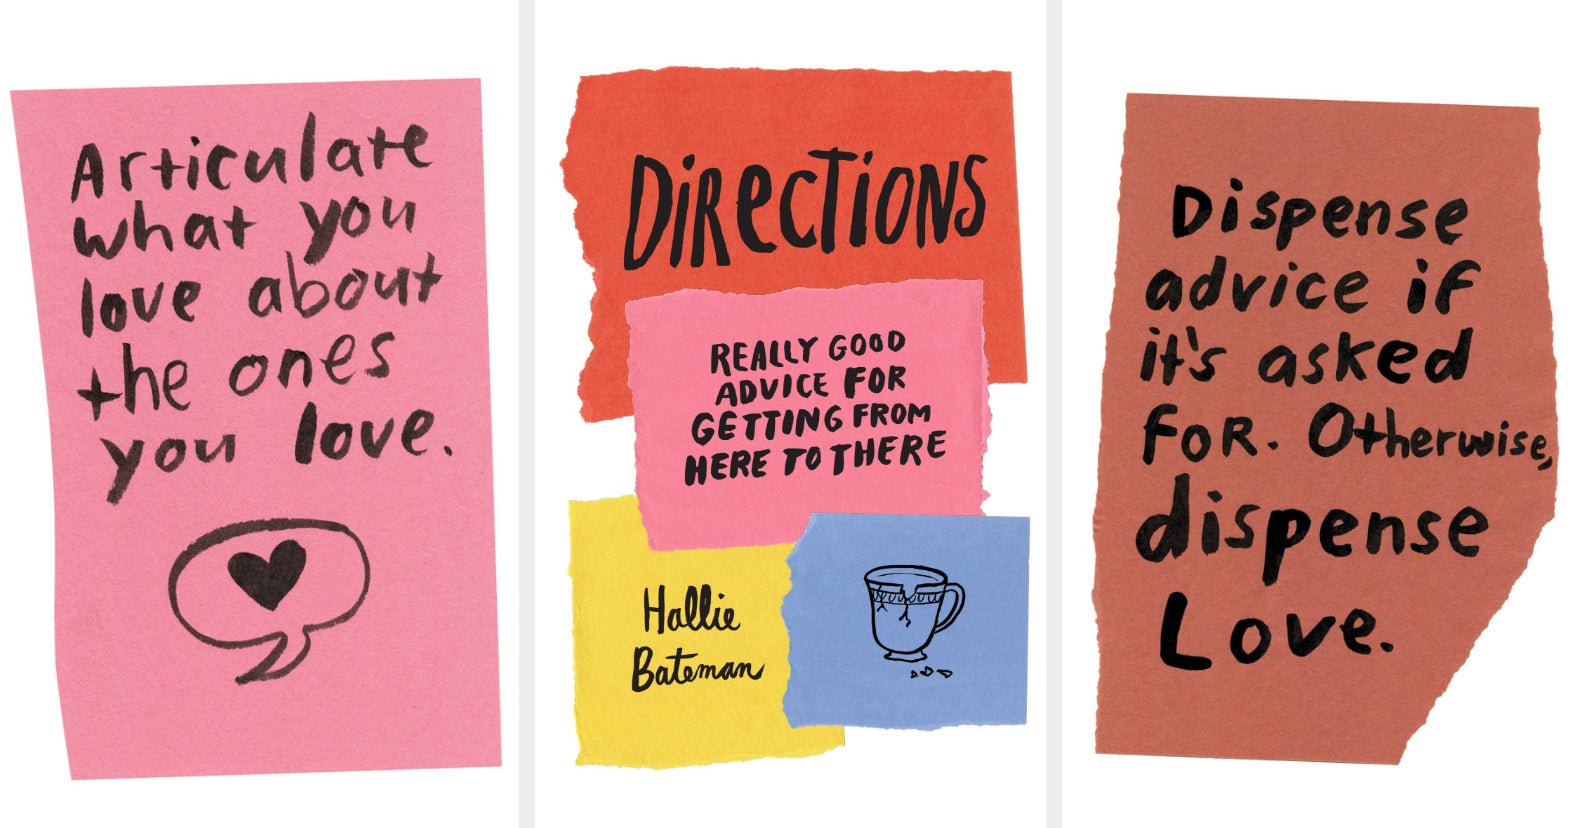 Articulate
what you
love about
the ones
you love.
DiRecTioNS
REALLY GOOD
ADVICE FOR
GETTING FROM
HERE TO THERE
Hallie
Bateman
Dispense
advice if
it's asked
FoR. Otherwise,
dispense
Love.